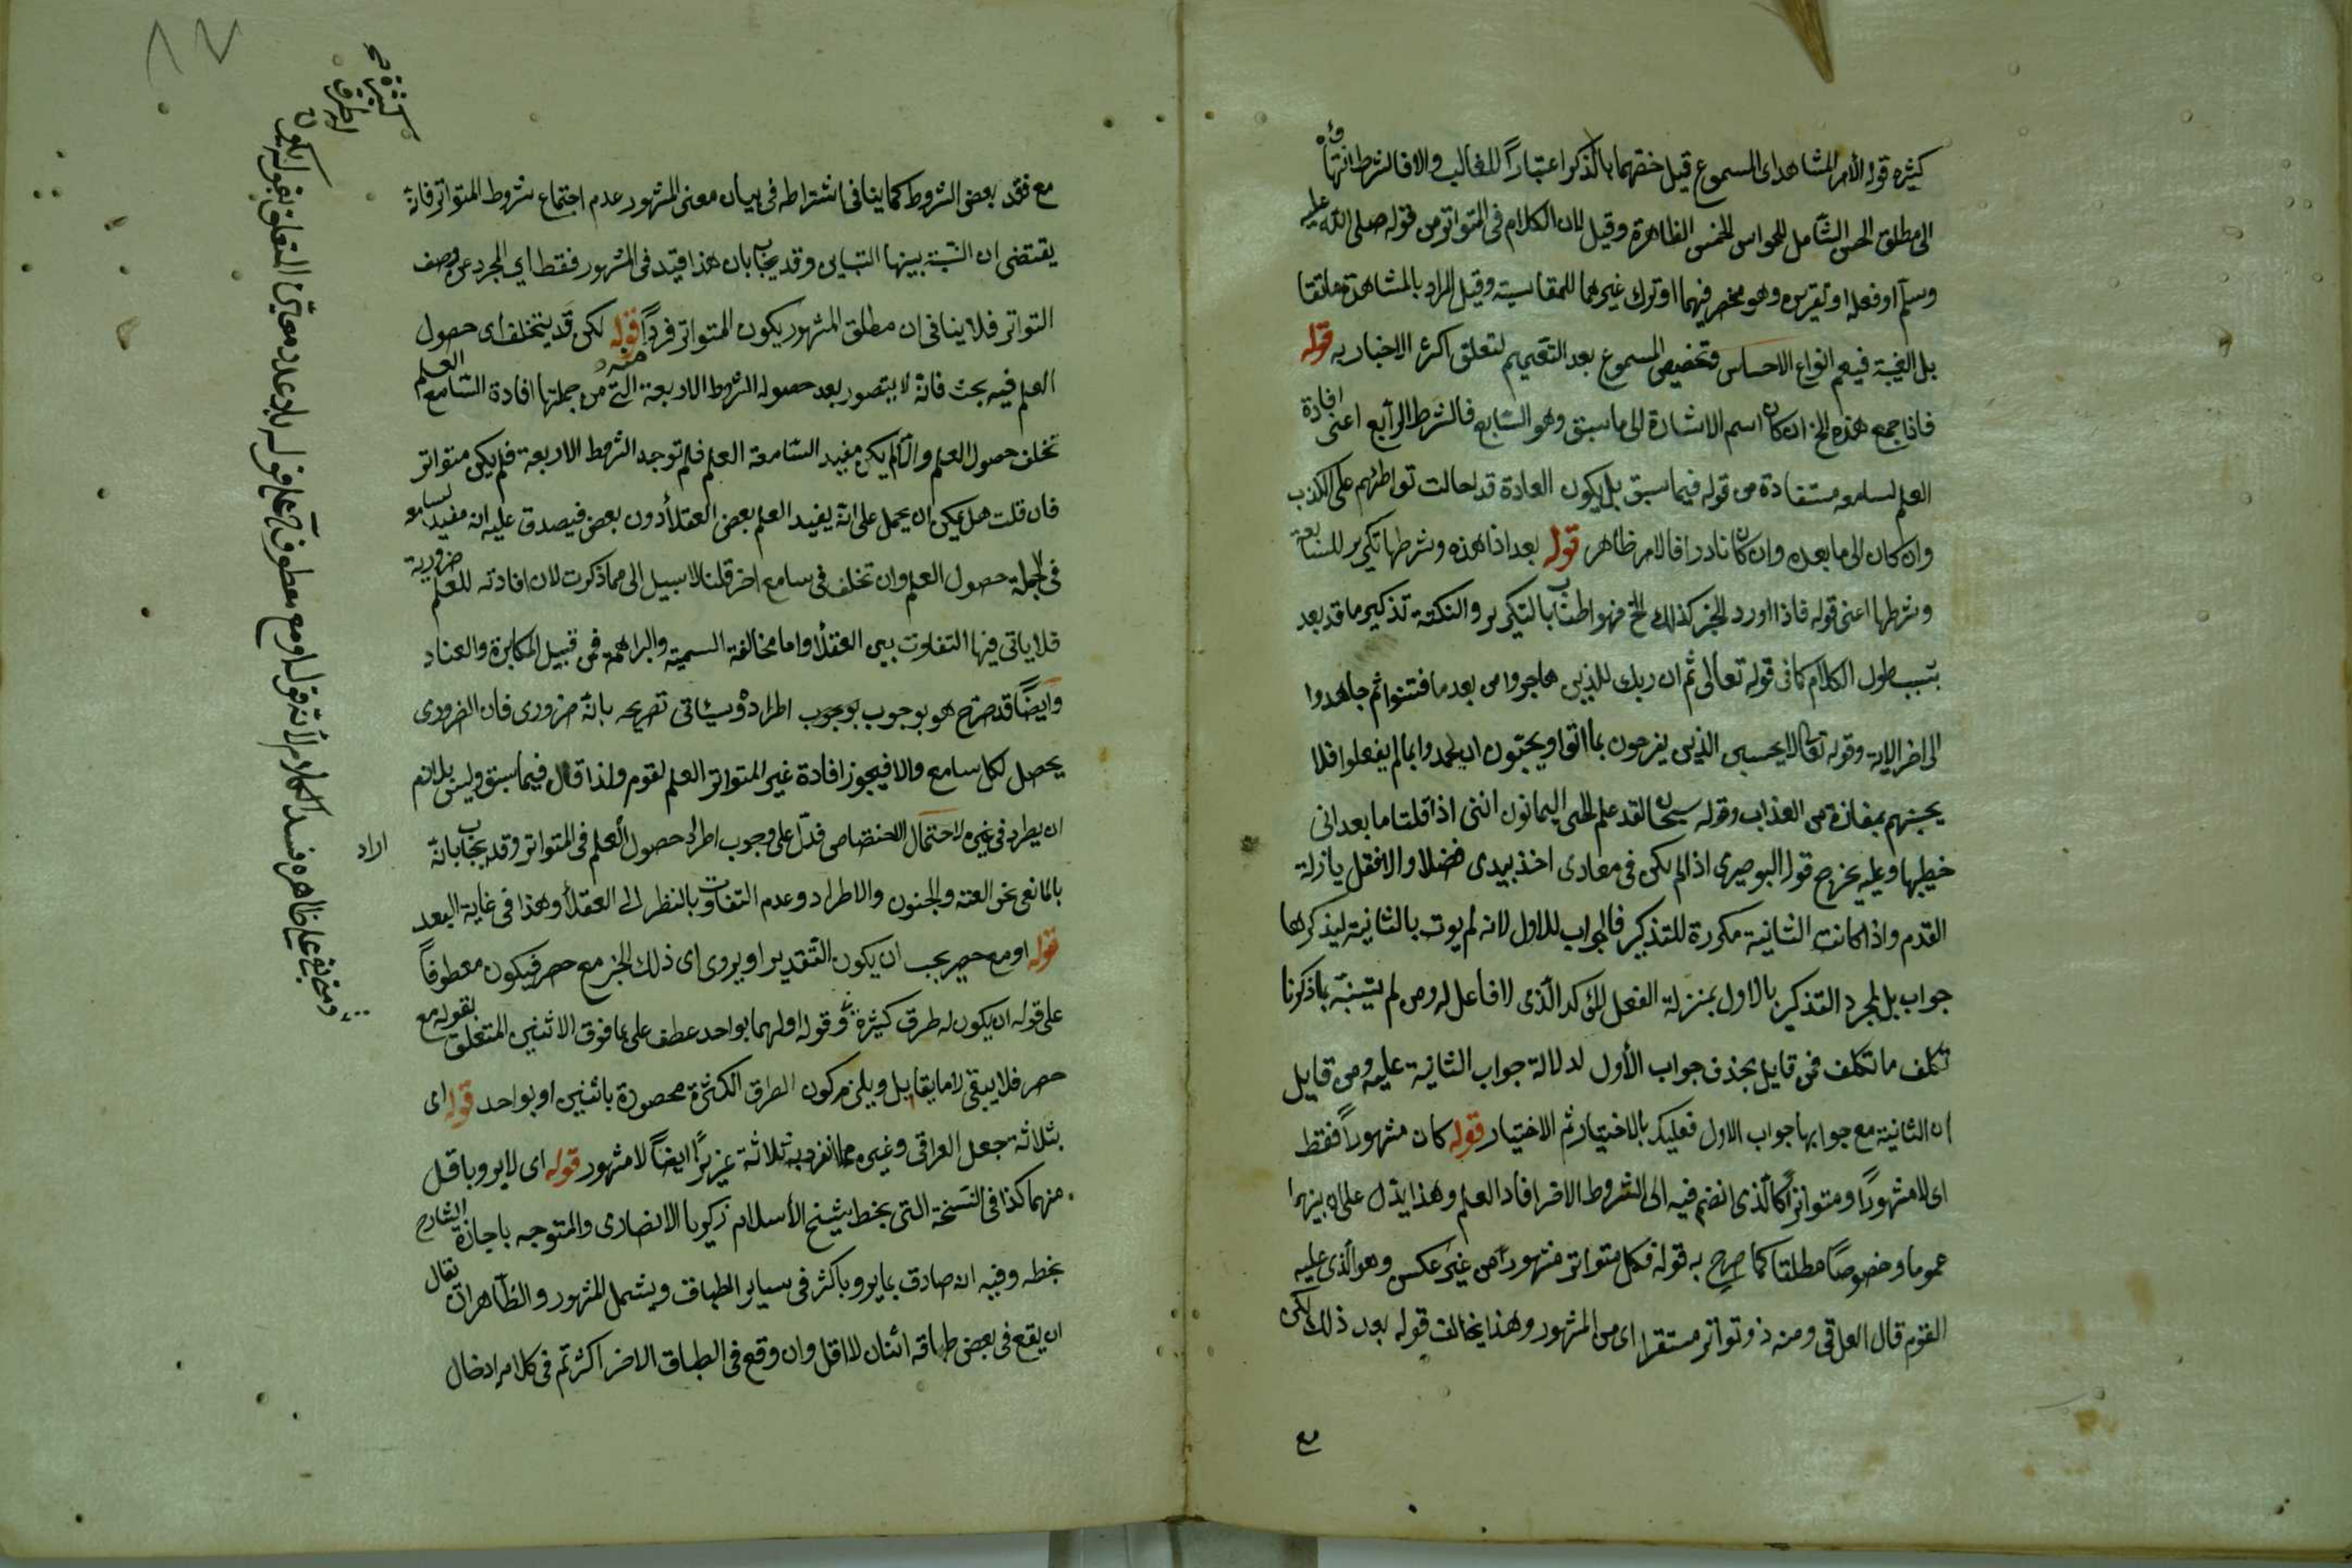 كثيره قوله الأمر المشاهد اى المسموع قيل خصهما بالذكر اعتبارًا للغالب والا فالشرط انتهاؤه
الى مطلق الحس الشامل للحواس الخمس الظاهرة وقيل لان الكلام فى المتواتر من قوله صلى الله عليه
وسلم او فعله او تقريره وهو منحصر فيهما او ترك غيرهما للمقايسة وقيل المراد بالمشاهدة ما
بل الغيبة فيعم انواع الاحساس وتخصيص المسموع بعد التعميم لتعلق اكثر الاخبار به قوله
فاذا جمع هذه الخ ان كان اسم الاشارة الى ما سبق وهو السابع فالشرط الرابع اعنى افادة
العلم لسامعه مستفادة من قوله فيما سبق بل يكون العادة قد احالت تواطئهم على الكذب
وان كان الى ما بعده وان كان نادرا فالامر ظاهر قوله بعد اذا هذه وشرطها تكرير للسابقة
وشرطها اعنى قوله فاذا اورد الخبر كذلك الخ فهو اطناب بالتكرير والنكتة تذكير ما قد بعد
بسبب طول الكلام كما فى قوله تعالى ثم ان ربك للذين هاجروا من بعد ما فتنوا ثم جاهدوا
الى اخر الاية وقوله تعالى لا يحسبن الذين يفرحون بما اتوا ويحبون ان يحمدوا بما لم يفعلوا فلا
يحسبنهم بمفازة من العذاب وقوله لقد علم الحى اليمانون اننى اذا قلت اما بعد انى
خطيبها وعليه يخرج قول البوصيرى اذا لم يكن فى معادى اخذ بيدى فضلا والا فقل يا زلة
القدم واذا كانت الثانية مكررة للتذكير فالجواب للاول لانه لم يوت بالثانية ليذكر لها
جواب بل لمجرد التذكير بالاول بمنزلة الفعل المؤكد الذى لا فاعل له ومن لم يتنبه بما ذكرنا
تكلف ما تكلف فمن قايل بحذف جواب الأول لدلالة جواب الثانية عليه ومن قايل
ان الثانية مع جوابها جواب الاول فعليك بالاختبار ثم الاختيار قوله كان مشهورًا فقط
اى لا مشهورًا ومتواترًا كالذى انضم فيه الى الشروط الاخر افاد العلم وهذا يدل على ان بينهما
عموما وخصوصًا مطلقا كما صرح به قوله فكل متواتر مشهور من غير عكس وهو الذى عليه
القوم قال العراقى ومنه ذو تواتر مستقرا اى من المشهور وهذا يخالف قوله بعد ذلك لكن
مع
٨٧
مع فقد بعض الشروط كما ينافى اشتراطه فى بيان معنى المشهور عدم اجتماع شروط المتواتر فانه
يقتضى ان النسبة بينها التباين وقد يجاب بان هذا قيد فى المشهور فقط اي المجرد عن وصف
التواتر فلا ينافى ان مطلق المشهور يكون المتواتر فردًا منه قوله لكن قد يتخلف اى حصول
العلم فيه بحث فانه لا يتصور بعد حصول الشروط الاربعة التى من جملتها افادة السامع العلم
تخلف حصول العلم والا لم يكن مفيد السامعه العلم فلم توجد الشروط الاربعة فلم يكن متواتر
فان قلت هل يمكن ان يحمل على انه يفيد العلم بعض العقلأ دون بعض فيصدق عليه انه مفيد لسامعه
فى الجملة حصول العلم وان تخلف فى سامع اخر قلنا لا سبيل الى ما ذكرت لان افادته للعلم ضرورية
فلا ياتى فيها التفاوت بين العقلأ واما مخالفة السمنية والبراهمة فمن قبيل المكابرة والعناد
وايضًا قد صرح هو بوجوب بوجوب اطراده وسيئاتى تصريحه بانه ضرورى فان الضرورى
يحصل لكل سامع والا فيجوز افادة غير المتواتر العلم لقوم ولذا قال فيما سبق وليس بلازم
ان يطرد فى غيره لاحتمال الاختصاص فدل على وجوب اطراد حصول العلم فى المتواتر وقد يجاب بانه اراد
بالمانع نحو العته والجنون والاطراد وعدم التفاوت بالنظر الى العقلأ وهذا فى غاية البعد
قوله او مع حصر يجب ان يكون التقدير او يروى اى ذلك الخبر مع حصر فيكون معطوفاً
على قوله ان يكون له طرق كثيرة وقوله اولهما بواحد عطف على بما فوق الاثنين المتعلق بقوله مع
حصر فلا يبقى لاما يقابل ويلزم كون الطرق الكثيرة محصورة باثنين او بواحد قوله اى
بثلاثة جعل العراقى وغيره مما انفرد به ثلاثة عزيزًا ايضًا لا مشهور قوله اى لا يرو باقل
منهما كذا فى النسخة التى بخط شيخ الأسلام زكريا الانصارى والمتوجه باجازة الشارح
بخطه وفيه انه صادق بما يرو باكثر فى سائر الطباق ويشمل المشهور والظاهر ان يقال
ان يقع فى بعض طباقه اثنان لا اقل وان وقع فى الطباق الاخر اكثر ثم فى كلامه ادخال